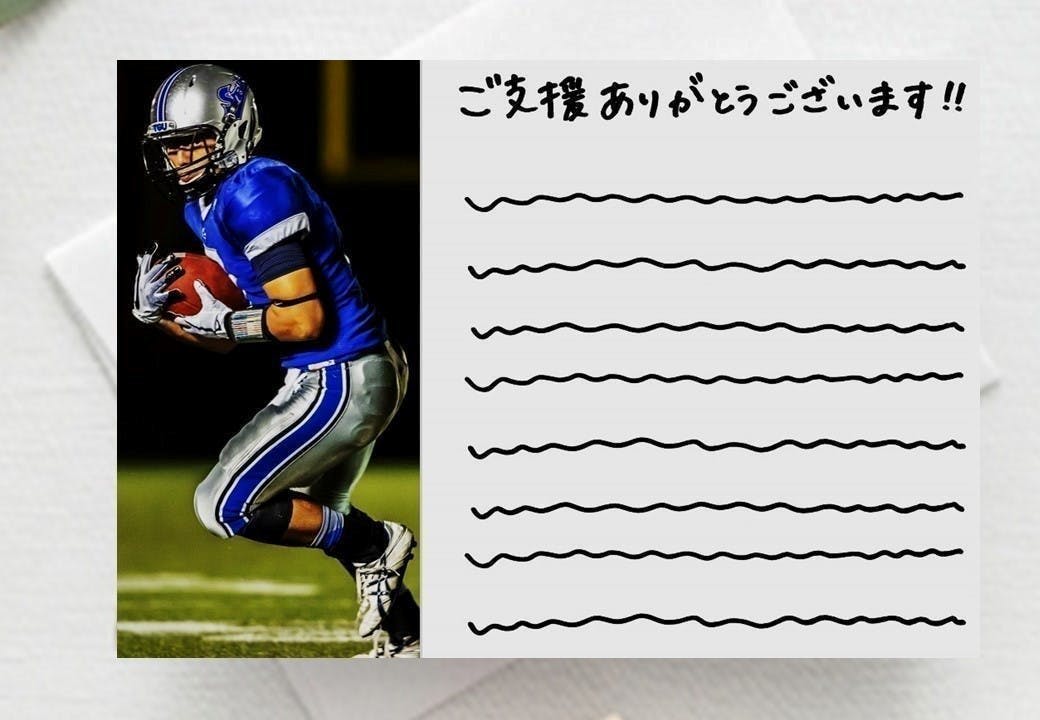 ご支援ありがとうございます!!
TGU